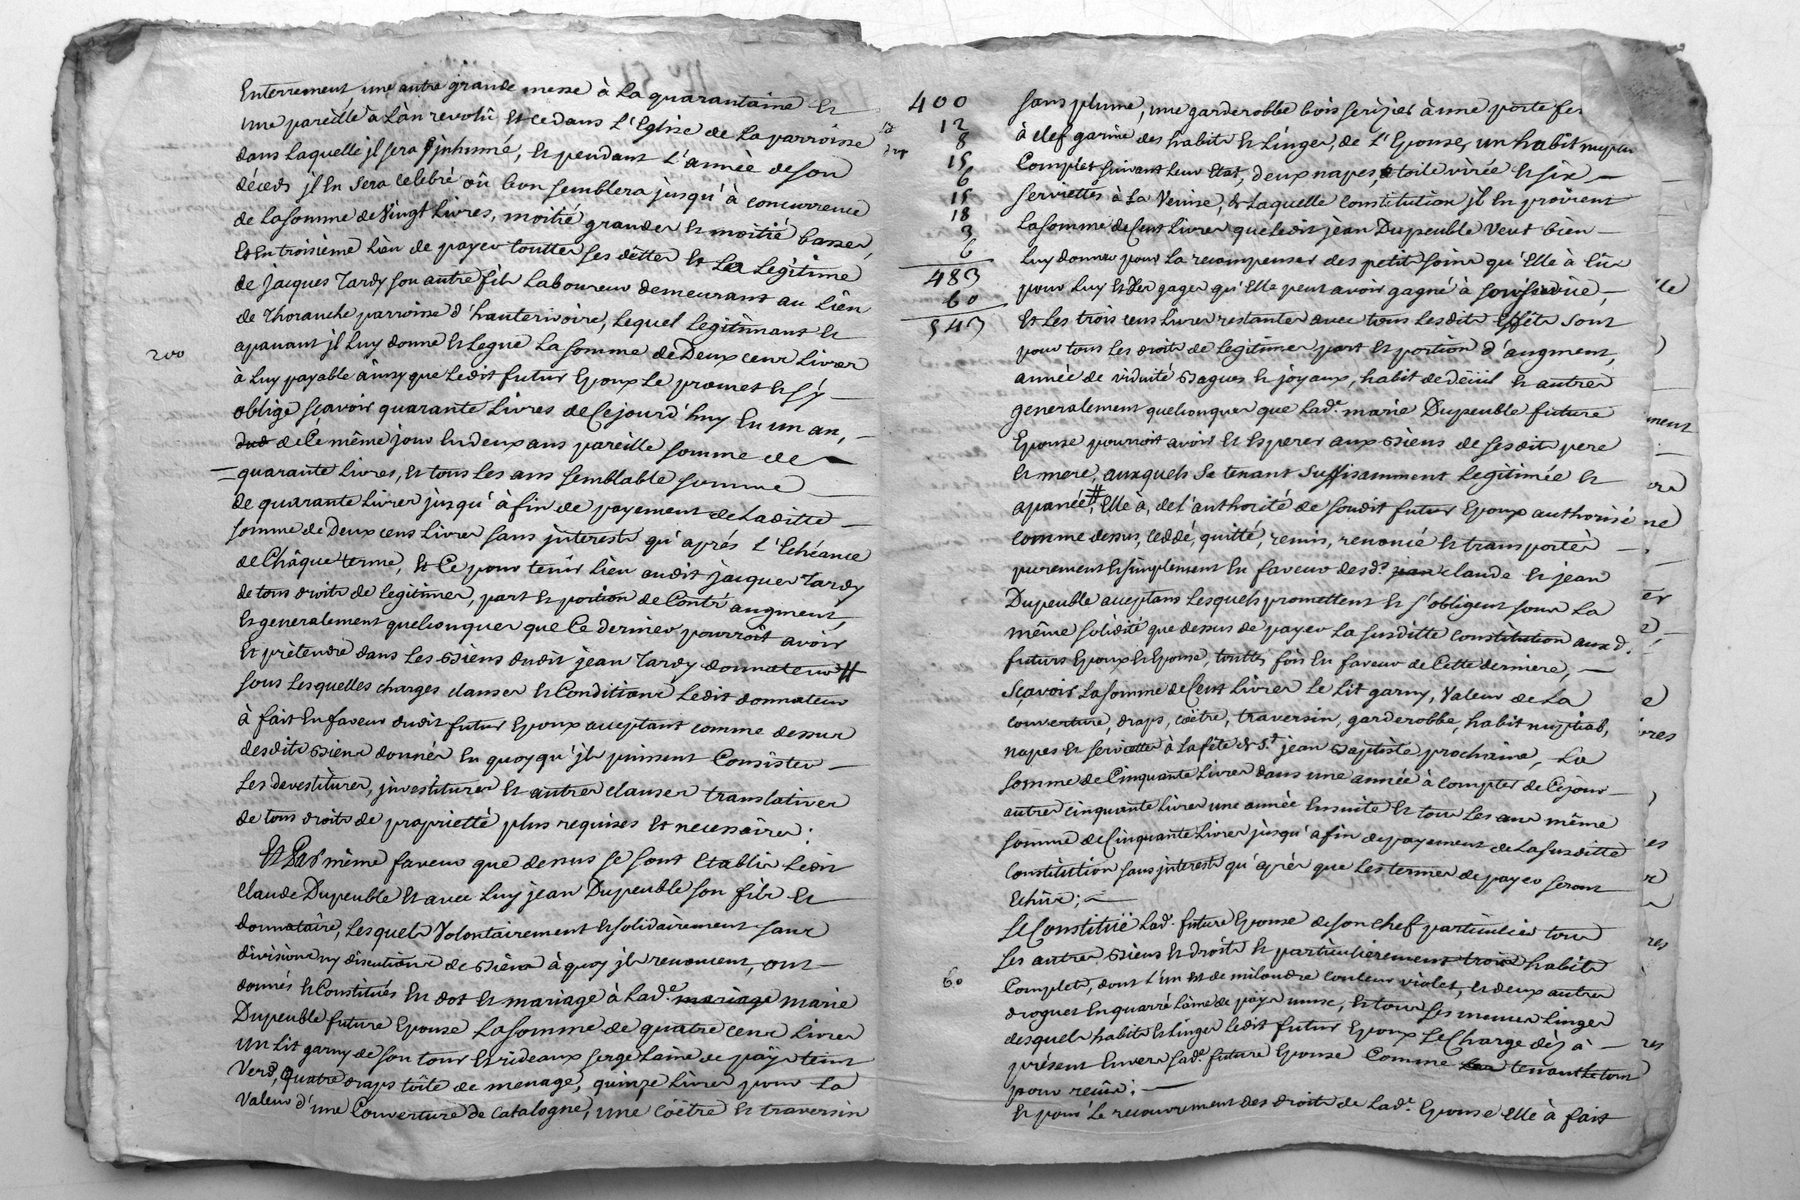 Enterrement, une autre grande messe à La quarantaine Et
une pareille à L'an revolû Et ce dans L'Eglise de La parroisse
dans Laquelle jl sera jnhumé, Et pendant L'année de son
déceds jl En sera celebré oû bon semblera jusqu'à concurrence
de La somme de Vingt Livres, moitié grandes Et moitié basses,
Et En troisième Lieu de payer touttes ses dettes Et La Legitime
de Jacques Tardy son autre fils Laboureur demeurant au Lieu
de Thoranche parroisse d'hauterivoire, Lequel Legitimant Et
apanant jl Luy donne Et Legue La somme de Deux cens Livres
200
à Luy payable ainsy que Ledit futur Epoux Le promet Et s'y
oblige sçavoir quarante Livres de Cejourd'huy En un an,
de Cé même jour En deux ans pareille somme de
quarante Livres, Et tous Les ans semblable somme
de quarante Livres jusqu'à fin de payement de Laditte
somme de Deux cens Livres sans jnterests qu'aprés L'Echéance
de Châque terme, Et Ce pour tenir Lieu audit jacques Tardy
de tous droits de legitimes, part Et portion de Contr'augment,
Et generalement quelconques que Ce dernier pourroit avoir
Et prétendre dans Les Biens dudit jean Tardy donnateur #
sous Lesquelles charges clauses Et Conditions Ledit donnateur
à fait En faveur dudit futur Epoux acceptant comme dessus
desdits Biens donnés En quoy qu'jls puissent Consister
Les devestitures, jnvestitures Et autres clauses translatives
de tous droits de proprietté plus requises Et necessaires.
Et Par même faveur que dessus se sont Etablis Ledit
Claude Dupeuble Et avec Luy jean Dupeuble son fils Et
donnataire, Lesquels Volontairement Et solidairement sans
division ny discution de Biens à quoy jls renoncent, ont
donnés Et Constitués En dot Et mariage à Lad.e mariage marie
Dupeuble future Epouse La somme de quatre cens Livres
un Lit garny de son tour Et rideaux serge Laine de païs teint
Verd, quatre draps toile de menage, quinze Livres pour La
Valeur d'une Couverture de Catalogne, une Coëtre Et traversin
400
12
8
15
6
15
18
3
6
483
60
543
sans plume, une garderobbe bois serizier à une porte fer
à clef garnie des habits Et Linges, de L'Epouse, un habit nup
Complet suivant Leur Etat, deux napes, toile virée Et six
serviettes à La Venise, de Laquelle Constitution jl En provient
La somme de Cent Livres que Ledit jean Dupeuble Veut bien
Luy donner pour La recompenser des petits soins qu'Elle à Eûs
pour Luy Et Des gages qu'Elle peut avoir gagné à son service,
Et Les trois cens Livres restantes avec tous Lesdits Effets sont
pour tous Les droits de Legitimes part Et portion d'augment,
année de viduité Bagues Et joyaux, habit de deüil Et autres
generalement quelconques que Lad.e marie Dupeuble future
Epouse pourroit avoir Et Esperer aux Biens de sesdits pere
Et mere, auxquels se tenant suffisamment Legitimée Et
apanée,# Elle à, de L'authorité de sondit futur Epoux authorisé
comme dessus, ceddé, quitté, remis, renoncé Et transporté
purement Et simplement En faveur desd.s jean claude Et jean
Dupeuble acceptans Lesquels promettent Et s'obligent sous La
même solidité que dessus de payer La susditte Constitution aux d.
futurs Epoux Et Epouse, touttes fois En faveur de Cette derniere,
Sçavoir La somme de Cent Livres Le Lit garny, Valeur de La
couverture, draps, coëtre, traversin, garderobbe, habit nuptial,
napes Et serviettes à La fête de S.t jean Baptiste prochaine, La
somme de Cinquante Livres dans une année à compter de Cejour
autres cinquante Livres une année Ensuite Et tous Les ans même
somme de Cinquante Livres jusqu'à fin de payement de La susditte
Constitution sans jnterests qu'après que Les termes de payer seront
Echûs;
Se Constituë Lad. future Epouse de son chef particulier tous
Les autres Biens Et droits Et particulierement trois habits
60
Complets, dont L'un Est de milandre couleur violet, Et deux autres
droguet En quarré Laine de païs musc, Et tous ses menus Linges
desquels habits Et Linges Ledit futur Epoux se Charge dès à
présent Envers Sad.e future Epouse Comme tenant Le tout
pour reçûs;
Et pour Le recouvrement des droits de Lad.e Epouse Elle à fait